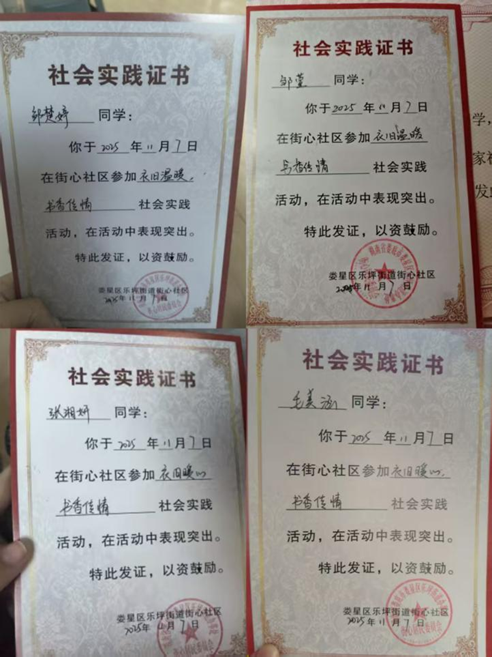 社会实践证书
邹楚婷 同学：
你于 2025 年 11 月 7 日
在街心社区参加 衣旧温暖，
书香传情 社会实践
活动，在活动中表现突出。
特此发证，以资鼓励。
娄星区乐坪街道街心社区
2025年11月7日
社会实践证书
邹萱 同学：
你于 2025 年 11 月 7 日
在街心社区参加 衣旧温暖
书香传情 社会实践
活动，在活动中表现突出。
特此发证，以资鼓励。
娄星区乐坪街道街心社区
2025年11月7日
学，
社会实践证书
张湘妍 同学：
你于 2025 年 11 月 7 日
在街心社区参加 衣旧暖心
书香传情 社会实践
活动，在活动中表现突出。
特此发证，以资鼓励。
娄星区乐坪街道街心社区
2025年11月7日
社会实践证书
毛美涵 同学：
你于 2025 年 11 月 7 日
在街心社区参加 衣旧暖心，
书香传情 社会实践
活动，在活动中表现突出。
特此发证，以资鼓励。
娄星区乐坪街道街心社区
2025年11月7日